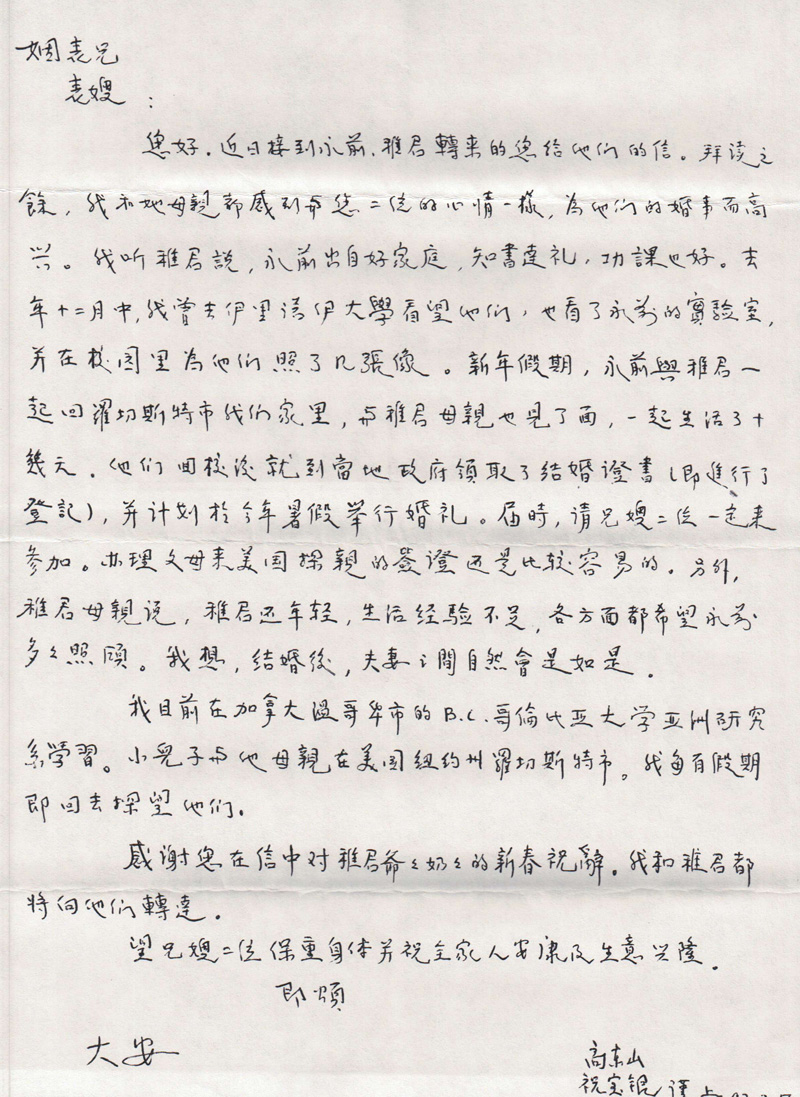 姻表兄
表嫂：
您好．近日接到永前．雅君轉来的您给他们的信。拜读之
餘，我和她母親都感到与您二位的心情一樣，為他们的婚事而高
兴。我听雅君説，永前出自好家庭，知書達礼，功課也好。去
年十二月中，我曾去伊里諾伊大學看望他们，也看了永前的實验室，
并在校园里為他们照了几張像。新年假期，永前與雅君一
起回羅切斯特市我们家里，与雅君母親也見了面，一起生活了十
幾天．他们回校後就到當地政府領取了结婚證書（即進行了
登記），并计划於今年暑假举行婚礼。届時，请兄嫂二位一起来
参加。办理父母来美国探親的簽證还是比较容易的．另外，
雅君母親说，雅君还年轻，生活经验不足，各方面都希望永前
多々照顾。我想，结婚後，夫妻之間自然會是如是．
我目前在加拿大温哥华市的B.C.哥倫比亚大学亚洲研究
系學習。小兒子与他母親在美国纽约州羅切斯特市。我每有假期
即回去探望他们．
感谢您在信中对雅君爺々奶々的新春祝辭．我和雅君都
将向他们轉達．
望兄嫂二位保重身体并祝全家人安康及生意兴隆．
即頌
大安
高东山
祝宝锟 谨上